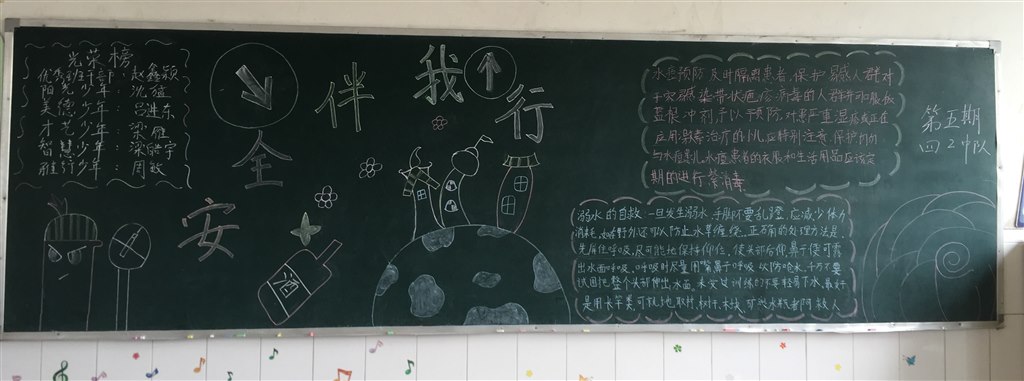 光荣榜
优秀班干部：赵鑫颖
阳光少年：沈
美德少年：吕进东
才艺少年：梁雁
智慧少年：梁皓宇
雅行少年：周毅
安全伴我行
酒
水痘预防 及时隔离患者，保护易感人群，对
于突感染带状疱疹病毒的人群，可服板
蓝根冲剂予以预防，对患严重湿疹或正在
应用激素治疗的儿，应特别注意保护
与水痘患儿，水痘患者的衣服和生活用品应该定
期的进行消毒
第五期
四2中队
溺水的自救 一旦发生溺水，手脚不要乱蹬，应减少体力
消耗，如在野外还可以防止水草缠绕，正石角的处理方法是
先屏住呼吸，尽可能地保持仰位，使头部后仰，鼻子便可露
出水面呼吸，呼吸时尽量用嘴鼻子呼吸以防呛水，千万不要
试图把整个头部伸出水面，未受过训练的不要轻易下水，最好
是用长竿类可乱地取材材木板，矿泉水瓶 救人